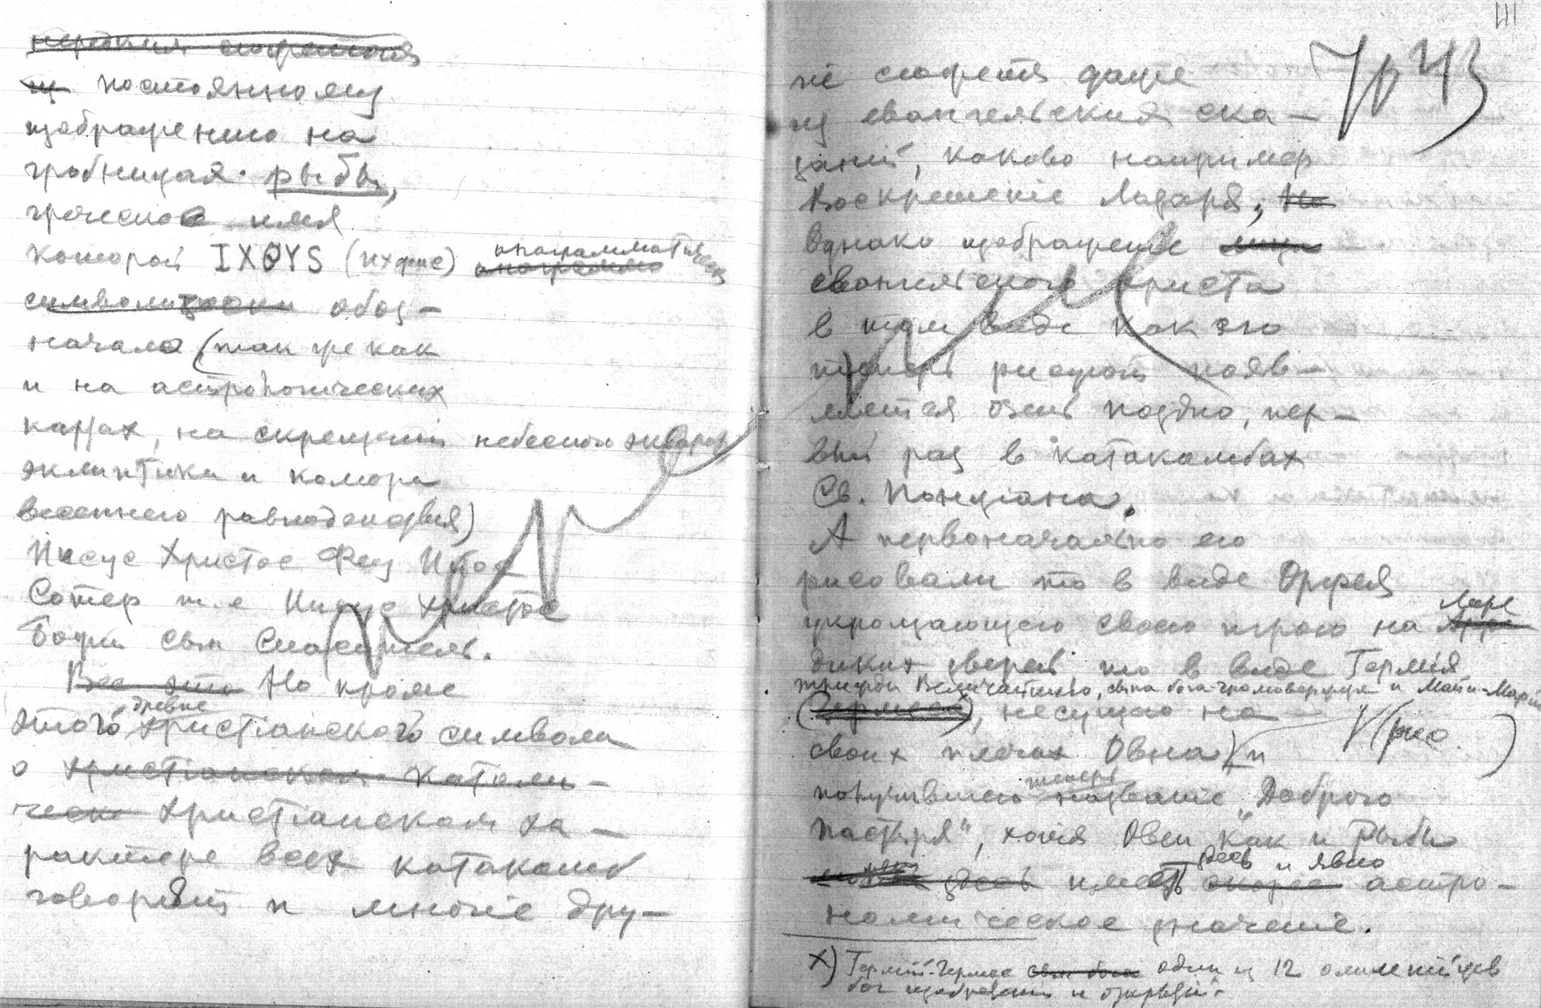 постоянному
изображению на
гробницах рыбы,
греческое имя
которой ΙΧΘΥΣ (ихтис) анаграмматически
символически обоз-
начало (так же как
и на астрологических
картах, на скрещении небесном экватора
эклиптики и колюра
весеннего равноденствия)
Иисус Христос Феу Иіос
Сотер т.е Иисус Христос
Божій сын Спаситель.
Все это Но кроме
этого древне христіанского символа
о христіанском католи-
ческ христіанском ха-
рактере всех катакомб
говорят и многіе дру-
III
гіе сюжеты даже
из евангельских ска-
заній, каково например
Воскрешеніе Лазаря, Но
Однако изображеніе
евангельского Христа
в том виде как его
теперь рисуют появ-
ляется очень поздно, пер-
вый раз в катакомбах
Св. Понціана.
А первоначально его
рисовали то в виде Орфея
укрощающего своею игрою на Лире
диких зверей то в виде Гермія
трижды Величайшего, сына бога-громовержца и Майи-Маріи
несущаго на
своих плечах Овна) и
получившего теперь названіе "Доброго
Пастыря", хотя Овен как и Рыбы
здесь имеет здесь и явно астро-
номическое значеніе.
х) Гермій-Гермес сын бога один из 12 олимпійцев
бог изобретений и